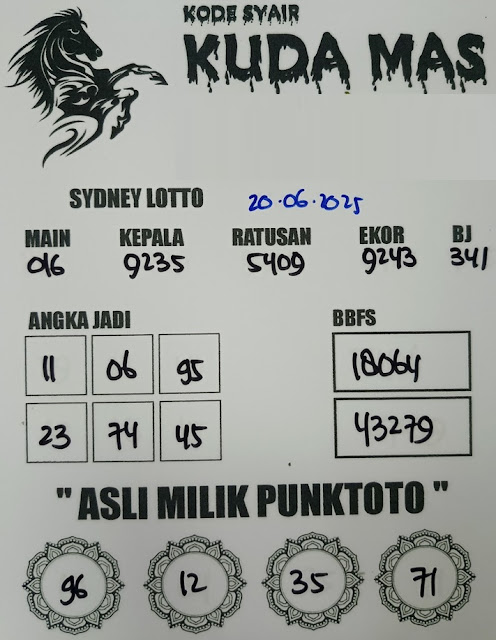 KODE SYAIR
KUDA MAS
SYDNEY LOTTO 20.06.2025
MAIN KEPALA RATUSAN EKOR BJ
016 9235 5409 9243 341
ANGKA JADI BBFS
11 06 95 18064
23 74 45 43279
" ASLI MILIK PUNKTOTO "
96 12 35 71